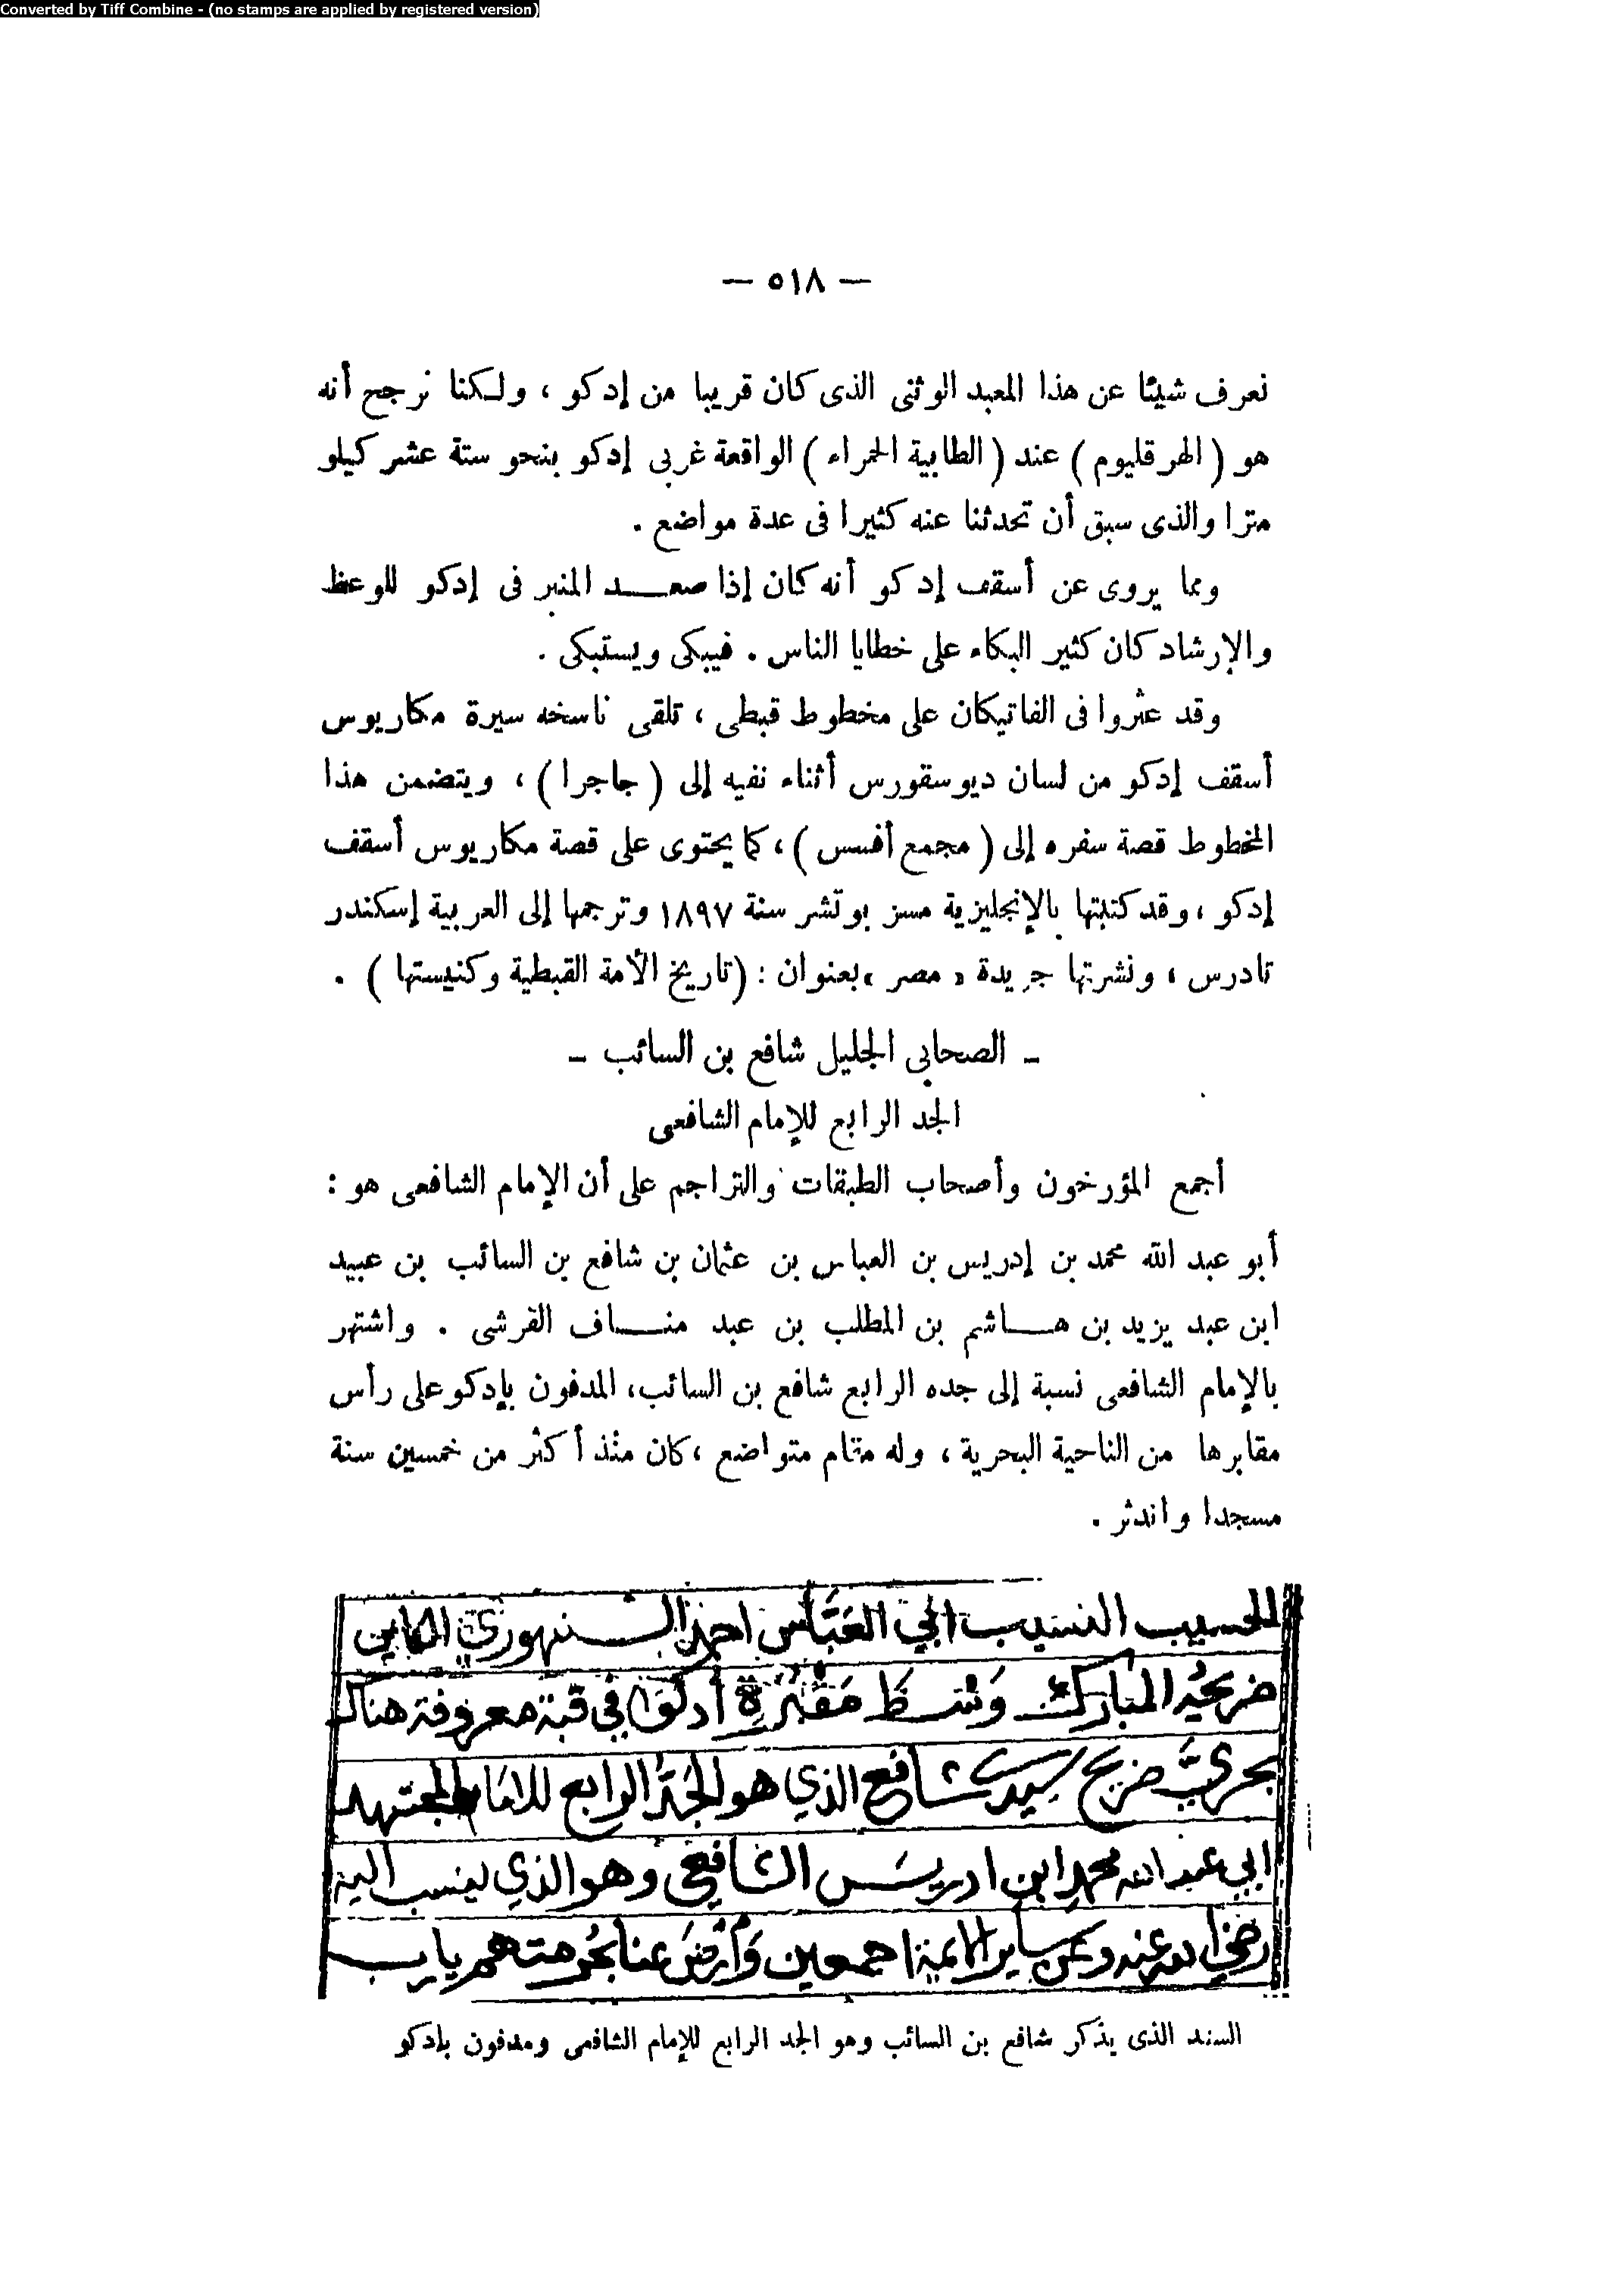 Converted by Tiff Combine - (no stamps are applied by registered version)
— ٥١٨ —
نعرف شيئا عن هذا المعبد الوثنى الذى كان قريبا من إدكو ، ولكنا نرجح أنه
هو ( الهرقليوم ) عند ( الطابية الحمراء ) الواقعة غربى إدكو بنحو ستة عشر كيلو
مترا والذى سبق أن تحدثنا عنه كثيرا فى عدة مواضع .
ومما يروى عن أسقف إدكو أنه كان إذا صعد المنبر فى إدكو للوعظ
والإرشاد كان كثير البكاء على خطايا الناس . فيبكى ويستبكى .
وقد عثروا فى الفاتيكان على مخطوط قبطى ، تلقى ناسخه سيرة مكاريوس
أسقف إدكو من لسان ديوسقورس أثناء نفيه إلى ( جاجرا ) ، ويتضمن هذا
المخطوط قصة سفره إلى ( مجمع أفسس ) ، كما يحتوى على قصة مكاريوس أسقف
إدكو ، وقد كتبتها بالإنجليزية مسز بوتشر سنة ١٨٩٧ وترجمها إلى العربية إسكندر
تادرس ، ونشرتها جريدة « مصر » بعنوان : ( تاريخ الأمة القبطية وكنيستها ) .
- الصحابى الجليل شافع بن السائب -
الجد الرابع للإمام الشافعى
أجمع المؤرخون وأصحاب الطبقات والتراجم على أن الإمام الشافعى هو :
أبو عبد الله محمد بن إدريس بن العباس بن عثمان بن شافع بن السائب بن عبيد
ابن عبد يزيد بن هاشم بن المطلب بن عبد مناف القرشى . واشتهر
بالإمام الشافعى نسبة إلى جده الرابع شافع بن السائب ، المدفون بإدكو على رأس
مقابرها من الناحية البحرية ، وله مقام متواضع ، كان منذ أكثر من خمسين سنة
مسجدا واندثر .
الحسيب النسيب ابي العَبَّاس احمد السنهوري الكاين
ضريحُه المبارك وَسَط مَقْبَرة أدكو في قبة معروفة هناك
بحريّ ضريح سيدي شافع الذي هو الجَدّ الرابع للامام المجتهد
ابي عبد الله محمد ابن ادريس الشافعي وهو الذي ينسب اليه
رضي الله عنه وعن ساير الايمة اجمعين وَأرْضَ عنا بحُرمتهم يارب
السند الذى يذكر شافع بن السائب وهو الجد الرابع للإمام الشافعى ومدفون بإدكو